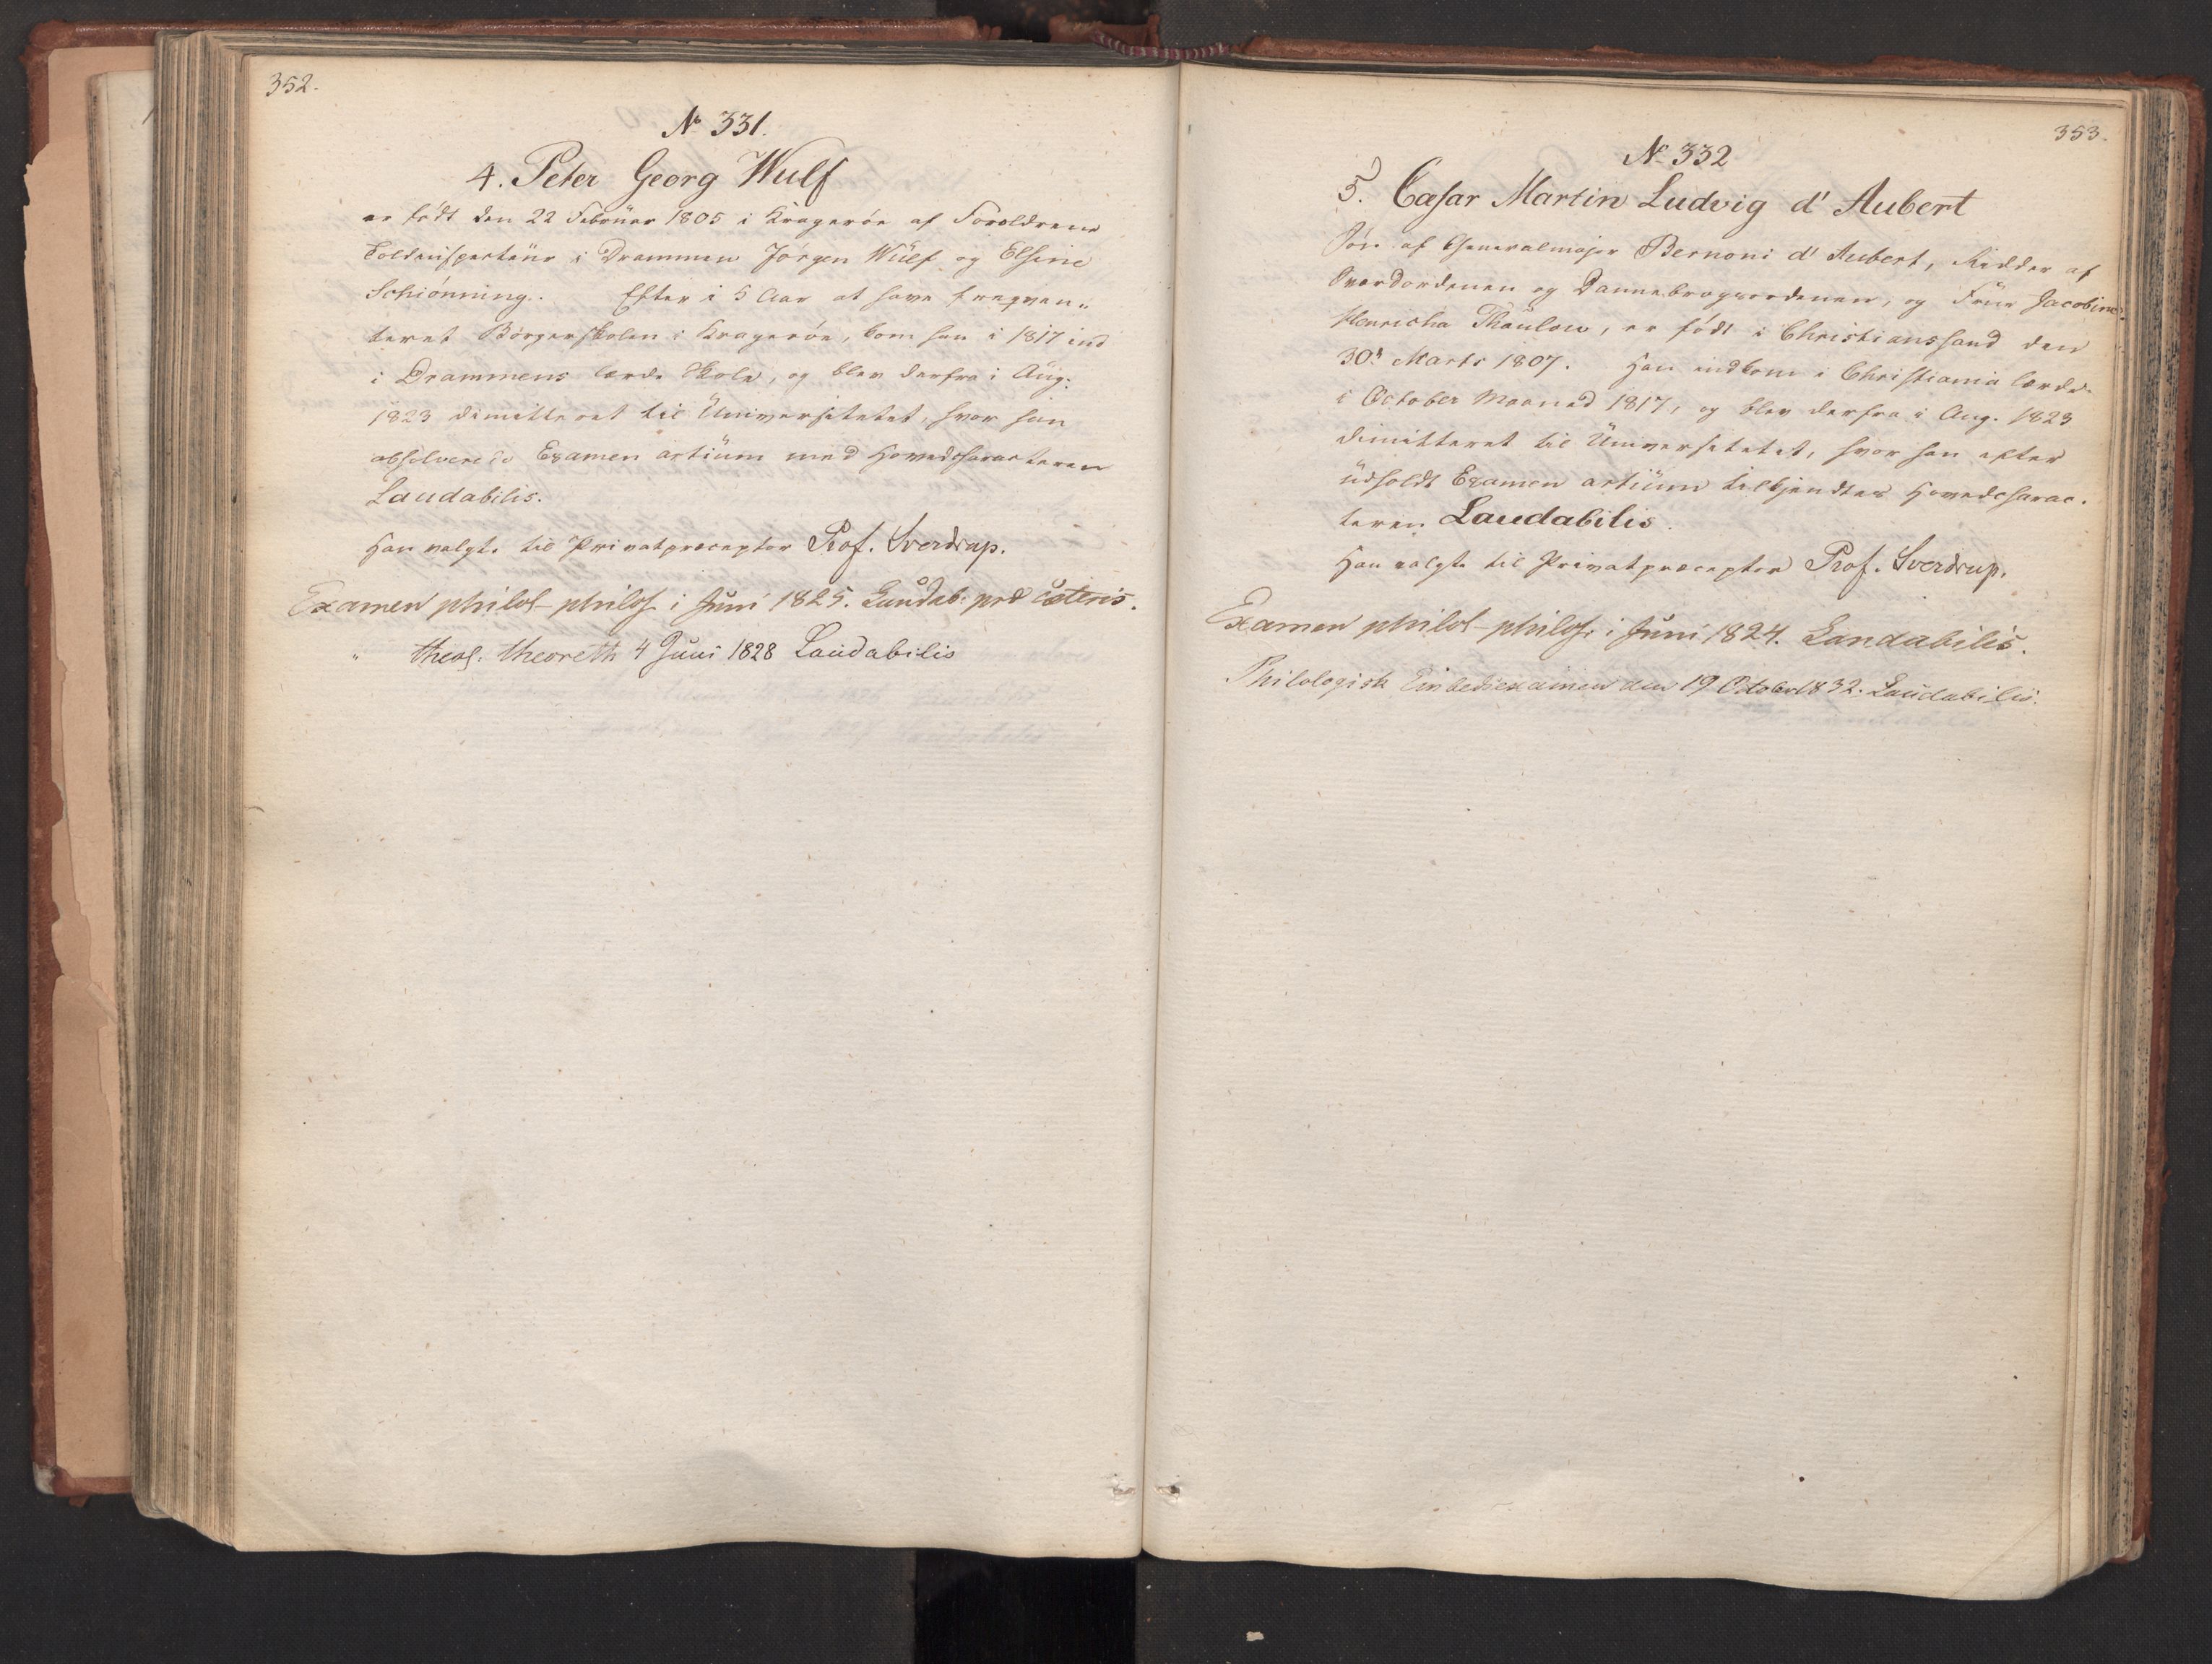 352.
№ 331.
4. Peter Georg Wulf
er født den 22 Februar 1805 i Kragerøe af Forældrene
Toldinspecteur i Drammen Jørgen Wulf og Elsine
Schiønning. Efter i 5 Aar at have freqven„
teret Borgerskolen i Kragerøe, kom han i 1817 ind
i Drammens lærde Skole, og blev derfra i Aug:
1823 dimitteret til Universitetet, hvor han
absolverede Examen artium med Hovedcharacteren
Laudabilis.
Han valgte til Privatpræceptor Prof. Sverdrup.
Examen philol-philos. i Juni 1825. Laudab: præ cæteris.
" theol. theoreth 4 Juni 1828 Laudabilis
353.
№ 332
5. Cæsar Martin Ludvig d'Aubert
Søn af Generalmajor Bernoni d'Aubert, Ridder af
Sværdordenen og Dannebrogsordenen, og Frue Jacobine
Henricha Thaulow, er født i Christianssand den
30te Marts 1807. Han indkom i Christiania lærde
i October Maaned 1817, og blev derfra i Aug. 1823
dimitteret til Universitetet, hvor han efter
udholdt Examen artium tilkjendtes Hovedcharac-
teren Laudabilis.
Han valgte til Privatpræceptor Prof. Sverdrup.
Examen philol-philos. i Juni 1824. Laudabilis.
Philologisk Embedsexamen den 19 October 1832. Laudabilis.